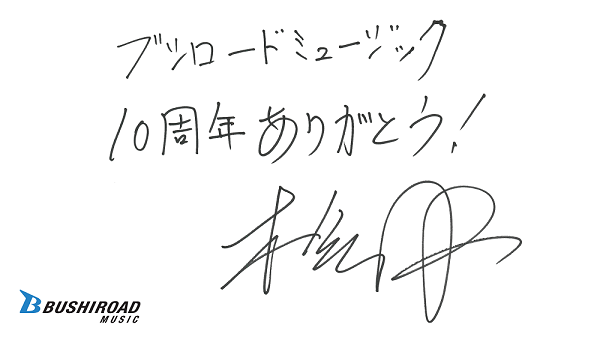 ブシロードミュージック
10周年ありがとう!
BUSHIROAD
MUSIC